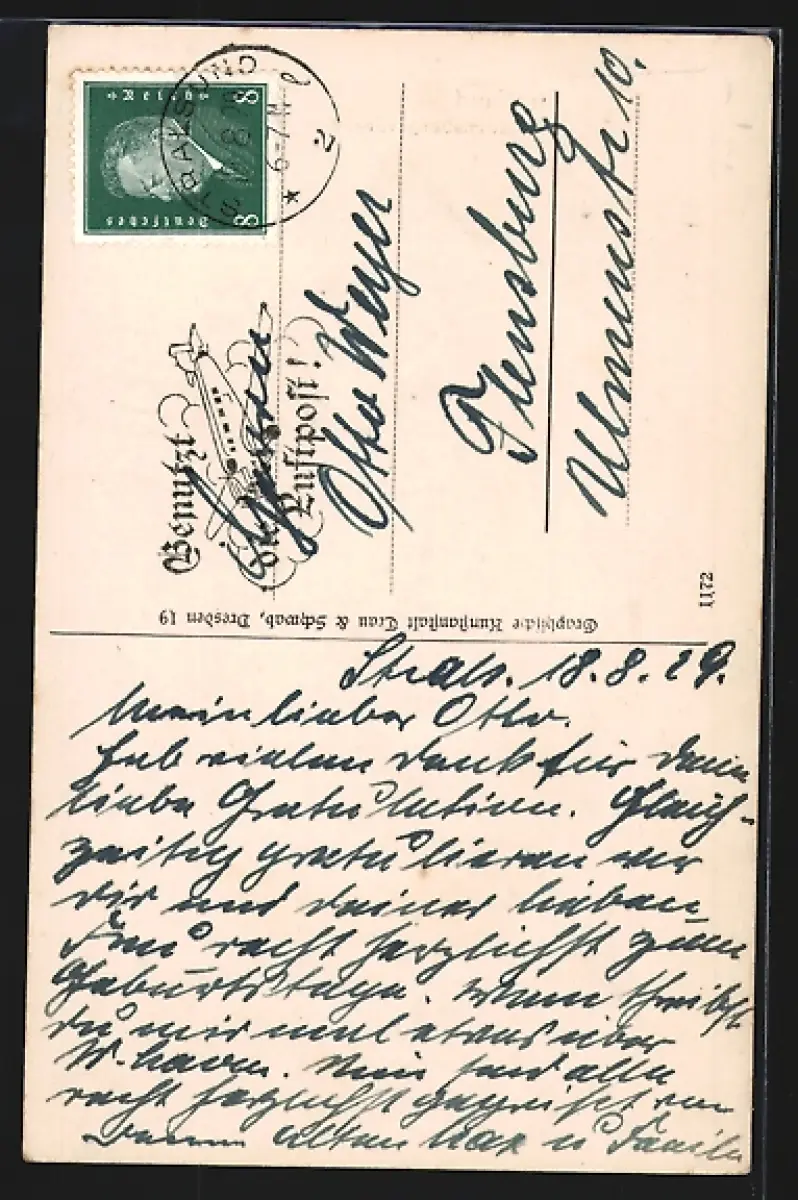 Deutsches Reich
8 8
STRALSUND
18.8.29 6-7 N
2
Benutzt
die
Luftpost!
Herrn
Otto Weyer
Flensburg
Ulmenstr 10.
Graphische Kunstanstalt Trau & Schwab, Dresden 19
1172
Strals. 18.8.29.
Mein lieber Otto.
Hab vielen Dank für Deine
liebe Gratulation. Gleich-
zeitig gratulieren wir
Dir und Deiner lieben
Frau recht herzlichst zum
Geburtstage. Wann schreibst
Du mir mal etwas über
W-haven. Nun seid alle
recht herzlichst gegrüßt von
Deinem alten Max u Familie